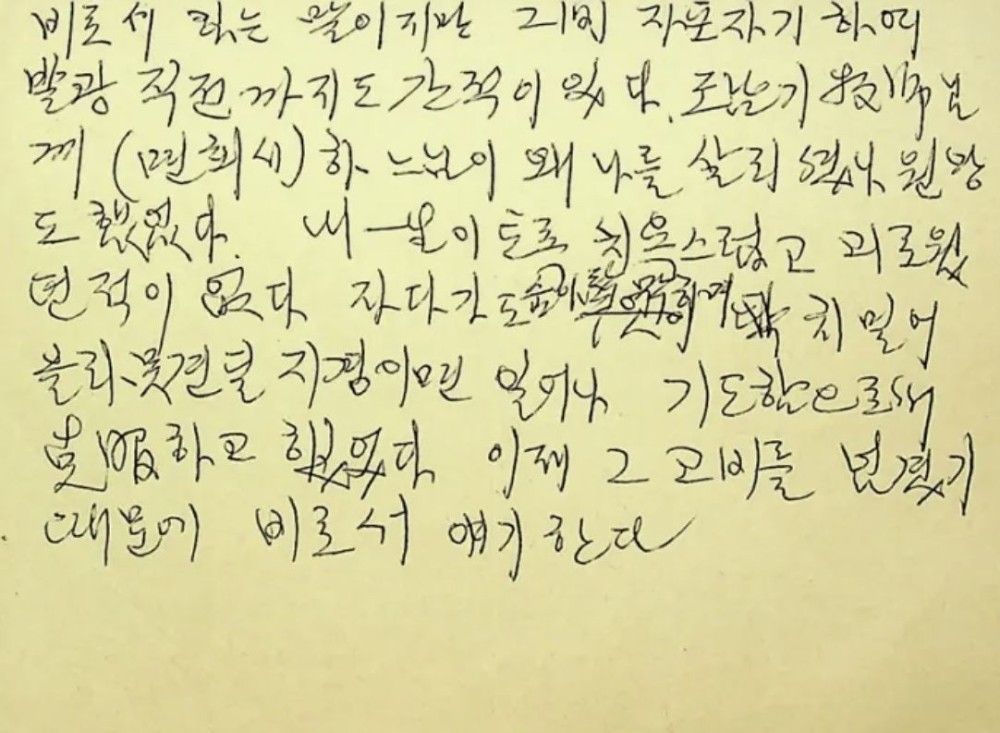 비로서 하는 말이지만 그때 자포자기 하여
발광 직전까지도 간적이 있다. 조남기 牧師님
께 (면회시) 하느님이 왜 나를 살리셨나 원망
도 했었다. 내 一生이 토록 치욕스럽고 괴로웠
던 적이 없다 자다가도 치밀어
올라 못견딜 지경이면 일어나 기도함으로서
克服하고 했었다 이제 그 고비를 넘겼기
때문에 비로서 얘기한다